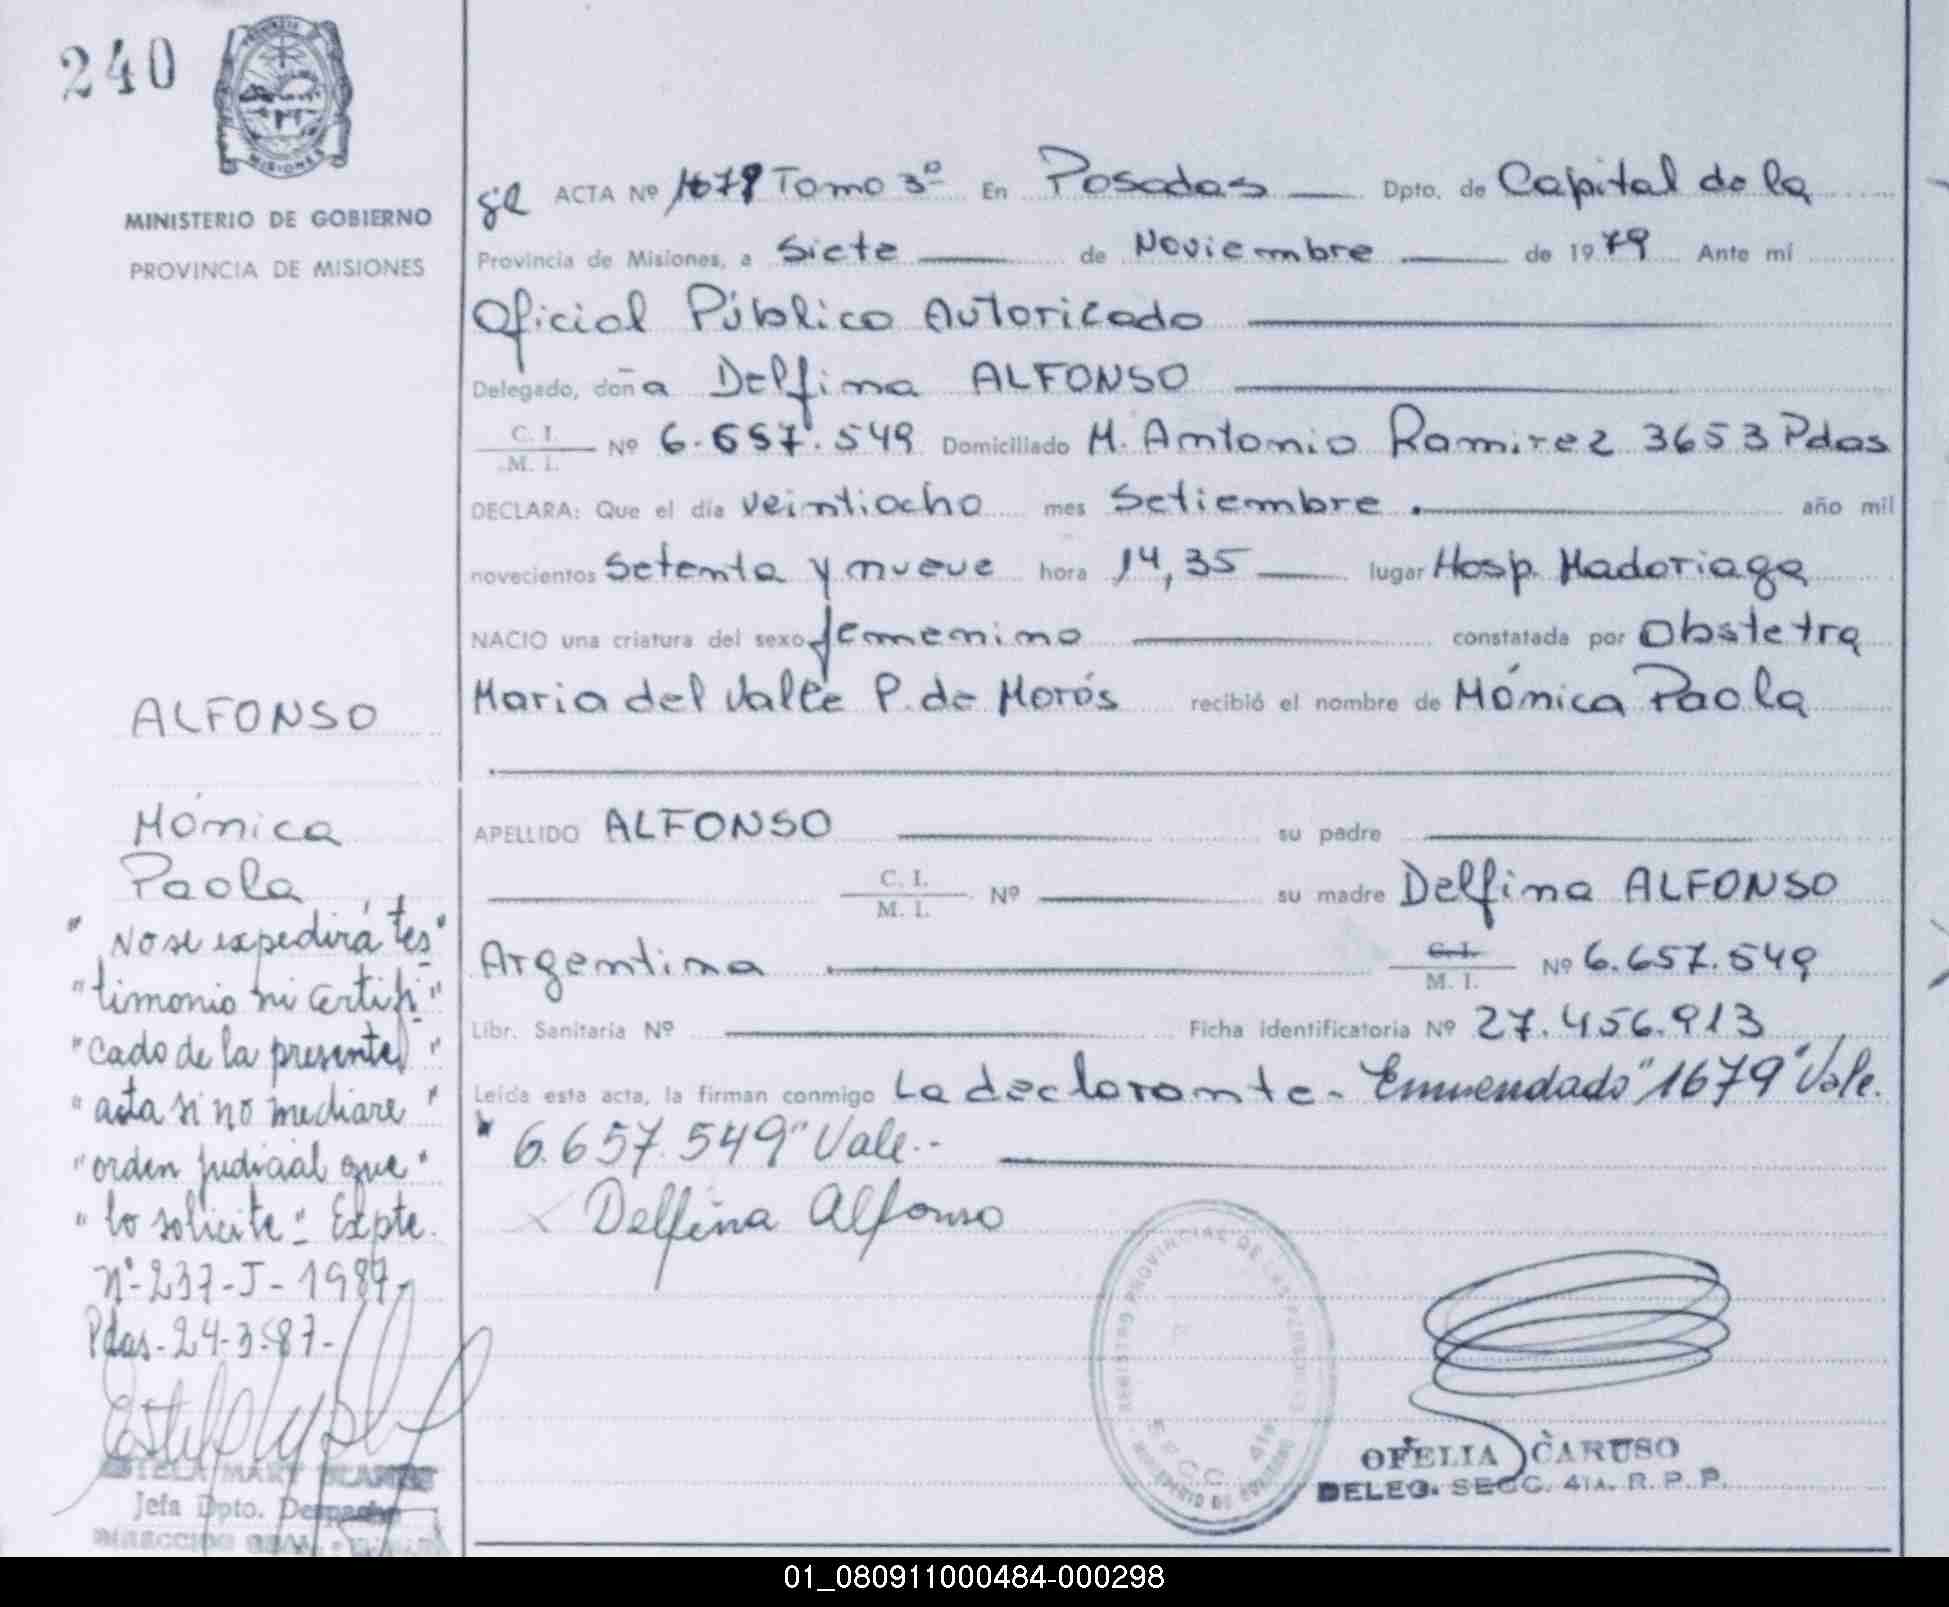 240
MINISTERIO DE GOBIERNO
PROVINCIA DE MISIONES
ACTA Nº 1679 Tomo 3º En Posadas Dpto. de Capital de la
Provincia de Misiones, a Siete de Noviembre de 1979 Ante mí
Oficial Público Autorizado
Delegado, doña Delfina ALFONSO
C. I.
M. I. Nº 6.657.549 Domiciliado M. Antonio Ramirez 3653 Pdas
DECLARA: Que el día veintiocho mes Setiembre año mil
novecientos Setenta y nueve hora 14,35 lugar Hosp. Madariaga
NACIO una criatura del sexo femenino constatada por Obstetra
Maria del Valle P. de Morós recibió el nombre de Mónica Paola
APELLIDO ALFONSO su padre
C. I.
M. I. Nº su madre Delfina ALFONSO
Argentina C. I.
M. I. Nº 6.657.549
Libr. Sanitaria Nº Ficha identificatoria Nº 27.456.913
Leída esta acta, la firman conmigo La declarante- Enmendado "1679" Vale.
" 6.657.549" Vale.-
Delfina Alfonso
OFELIA CARUSO
DELEG. SECC. 41A. R. P. P.
ALFONSO
Mónica
Paola
" No se expedirá tes"
"timonio ni certifi"
"cado de la presente"
"acta si no mediare "
"orden judicial que"
"lo solicite"- Expte.
Nº-237-J-1987-
Pdas-24-3-87-
Jefa Dpto. Despacho
01_080911000484-000298